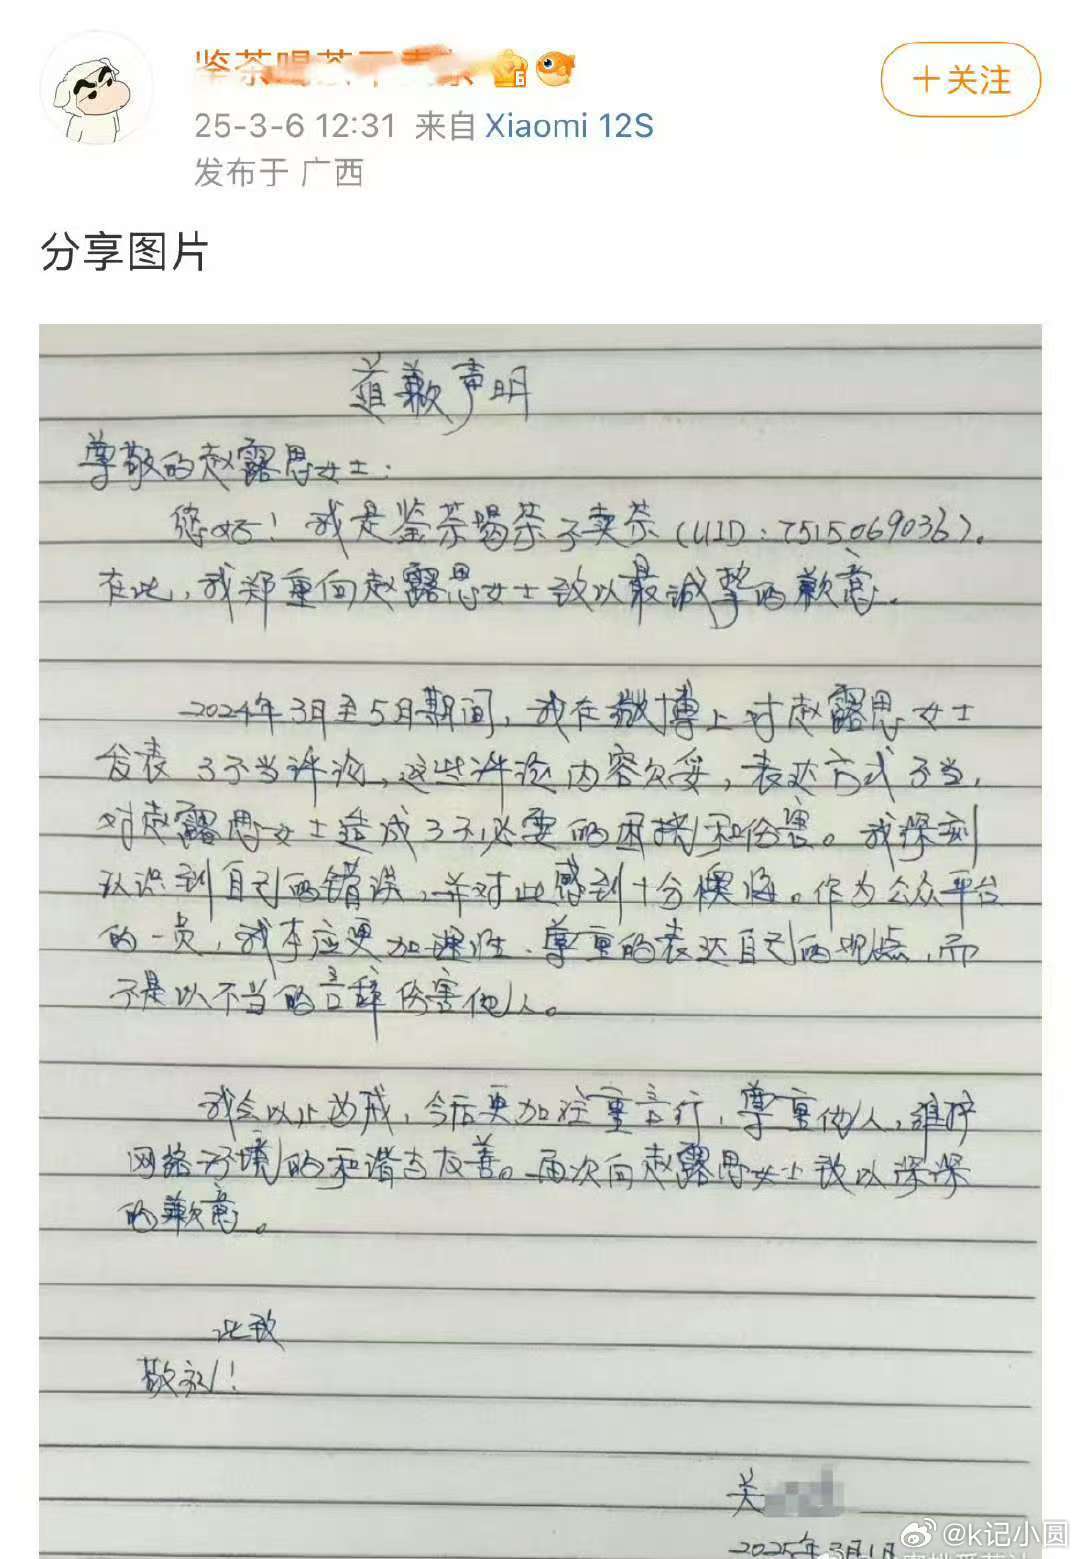 25-3-6 12:31 来自 Xiaomi 12S
发布于 广西
+关注
分享图片
道歉声明
尊敬的赵露思女士：
您好！我是鉴茶喝茶不卖茶（UID：7515069036）。
在此，我郑重向赵露思女士致以最诚挚的歉意。
2024年3月至5月期间，我在微博上对赵露思女士
发表了不当评论，这些评论内容欠妥，表达方式不当，
对赵露思女士造成了不必要的困扰和伤害。我深刻
认识到自己的错误，并对此感到十分懊悔。作为公众平台
的一员，我本应更加理性、尊重的表达自己的观点，而
不是以不当的言辞伤害他人。
我会以此为戒，今后更加注重言行，尊重他人，维护
网络环境的和谐与友善。再次向赵露思女士致以深深
的歉意。
此致
敬礼！
关
2025年3月1日
@k记小圆